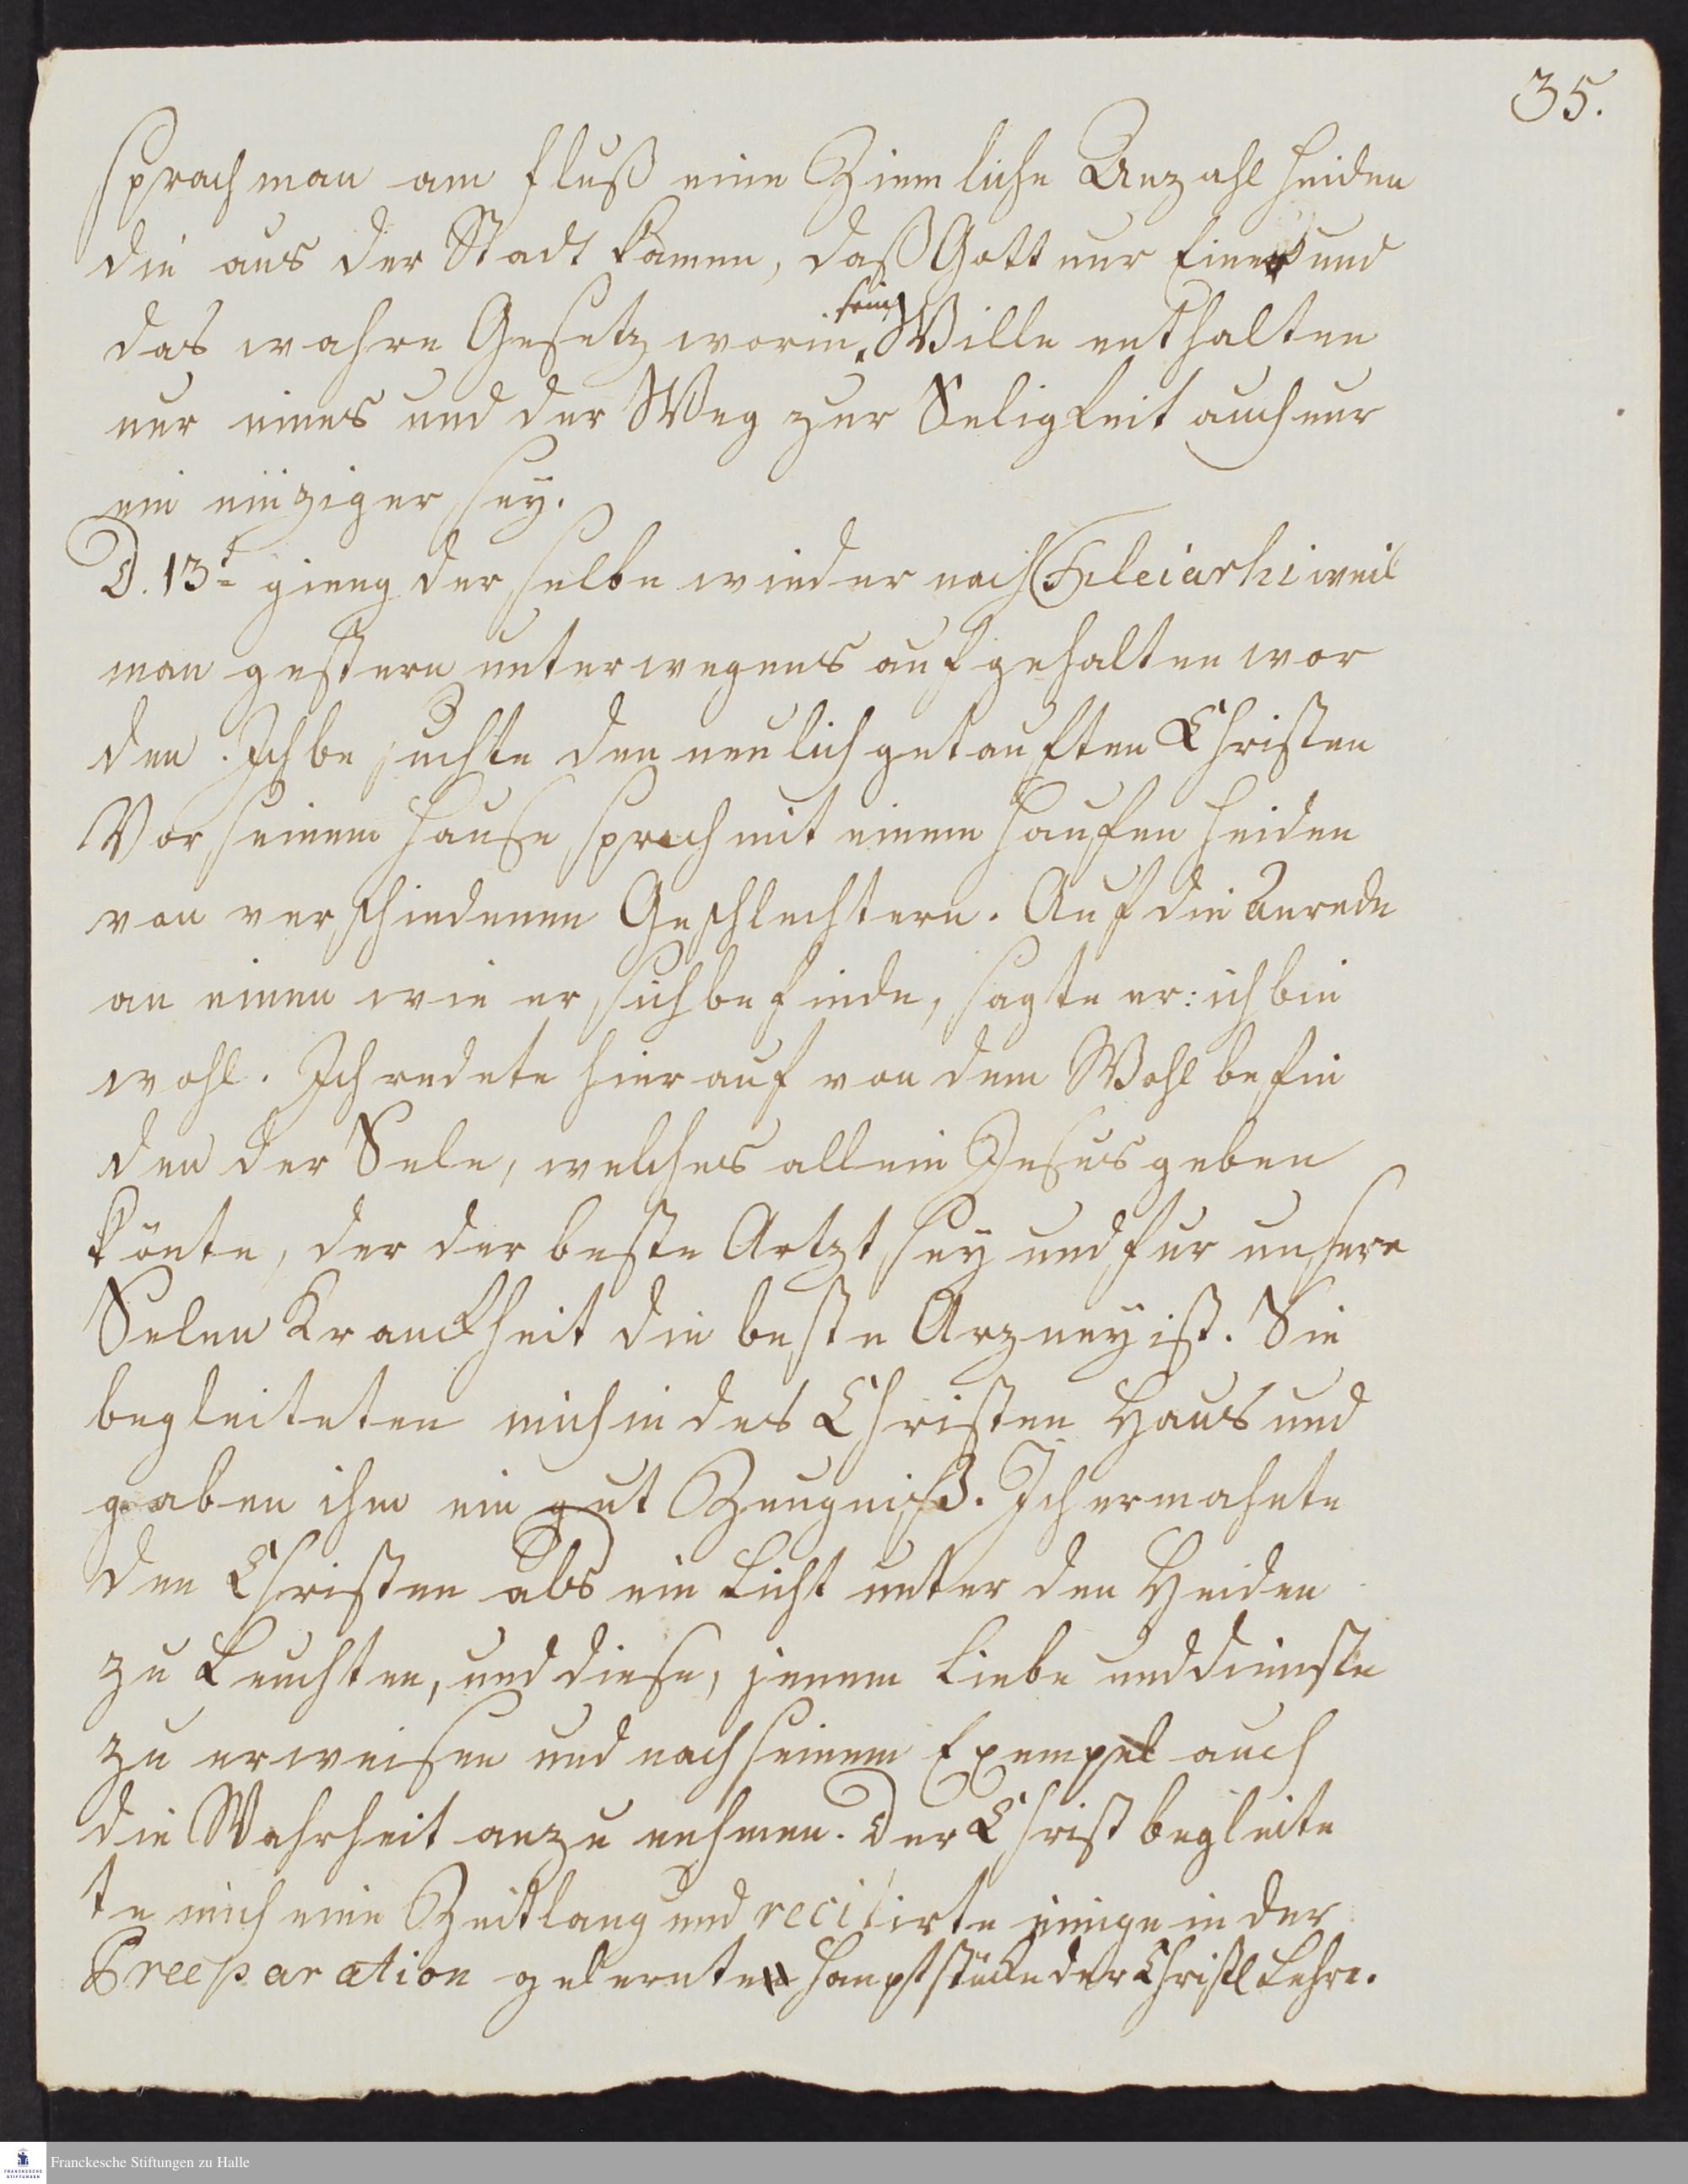 35.
sprach man am fluß eine Ziemliche Anzahl Heiden
die aus der Stadt kämen, daß Gott nur Einer und
das wahre Gesetz worin sein Wille enthalten
nur eines und der Weg zur Seligkeit auch nur
ein eintziger sey.
D. 13t gieng derselbe wieder nach weil
man gestern unterwegens aufgehalten wor
den. Ich besuchte den neulich getauften Christen
Vor seinem Hause sprach mit einem Haufen Heiden
von verschiedenen Geschlechtern. Auf die Anrede
an einen wie er sich befinde, sagte er: ich bin
wohl. Ich redete hierauf von dem Wohlbefin
den der Sele, welches allein Jesus geben
könte, der der beste Artzt sey und fur unsere
Selen Kranckheit die beste Arzney ist. Sie
begleiteten mich in des Christen Haus und
gaben ihm ein gut Zeugniß. Ich ermahnte
den Christen als ein Licht unter den Heiden
zu Leuchten, und diese, jenem Liebe und dienste
zu erweisen und nach seinem Exempel auch
die Wahrheit anzunehmen. Der Christ begleite
te mich eine Zeitlang und recitirte einige in der
Preeparation gelernte Hauptstücke der Christl Lehre.
FRANCKESCHE STIFTUNGEN
Franckesche Stiftungen zu Halle